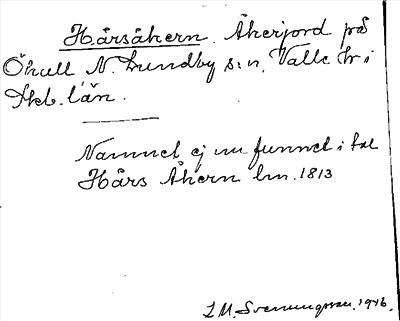 Hårsåkern. Åkerjord på
Ökull N. Lundby s:n, Valle hr i
Skb. län.
Namnet ej nu funnet i tal
Hårs Åkern lm. 1813
L. M. Svenungsson. 1946.